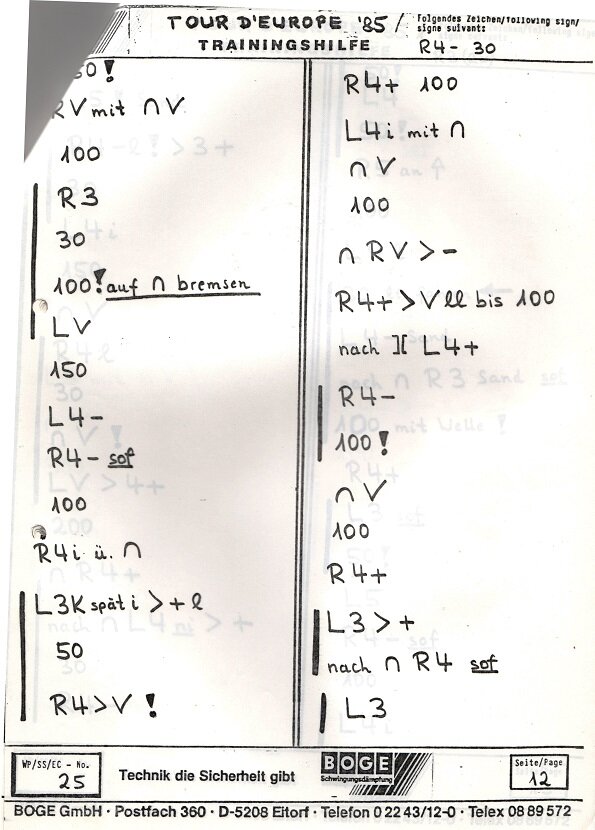 TOUR D'EUROPE '85/
TRAININGSHILFE
Folgendes Zeichen/following sign/
signe suivant:
R4- 30
50!
RV mit ∩ V
100
R3
30
100! auf ∩ bremsen
LV
150
L4-
R4- sof
100
R4i ü. ∩
L3K spät i > + l
50
R4>V !
R4+ 100
L4i mit ∩
∩ V
100
∩ RV > -
R4+ > V ll bis 100
nach ][ L4+
R4-
100!
∩ V
100
R4+
L3 > +
nach ∩ R4 sof
L3
WP/SS/EC - No.
25
Technik die Sicherheit gibt
BOGE
Schwingungsdämpfung
Seite/Page
12
BOGE GmbH · Postfach 360 · D-5208 Eitorf · Telefon 0 22 43/12-0 · Telex 08 89 572